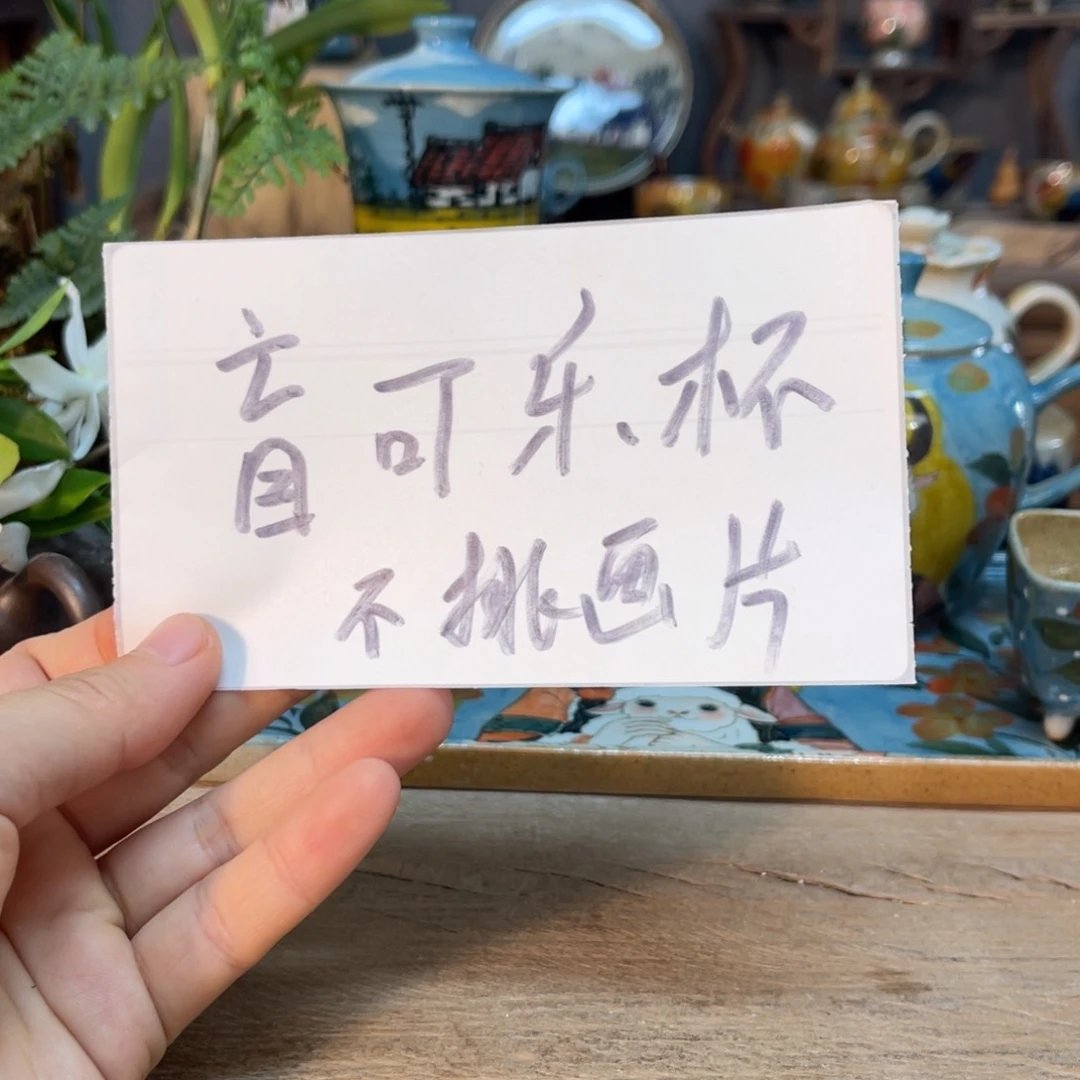 盲可乐杯
不挑画片